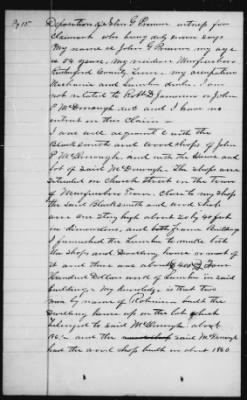 Pg 15
Deposition of John G Primm witness for
Claimant who being duly sworn says
My name is John G Primm my age
is 54 years, my residence Murfreesboro
Rutherford County Tenn. my occupation
Mechanic and Lumber dealer. I am
not related to Robt D Jamison or John
P McDonough decd and I have no
interest in this Claim —
I was well acquainted with the
Blacksmith and Wood shops of John
P McDonough, and with the house and
lot of said McDonough. the shops were
situated on Church Street in the town
of Murfreesboro Tenn. Close to my shop
the said Blacksmith and Wood shop
were one story high about 20 by 40 feet
in dimensions, and both frame Buildings
I furnished the lumber to build both
the shops and Dwelling house or most of
it and there was about
Hundred Dollars worth of lumber in said
buildings. My knowledge is that two
men by name of Robinson built the
Dwelling house up on the lot which
belonged to said McDonough about
and the said McDonough
had the wood shop built in about 1860